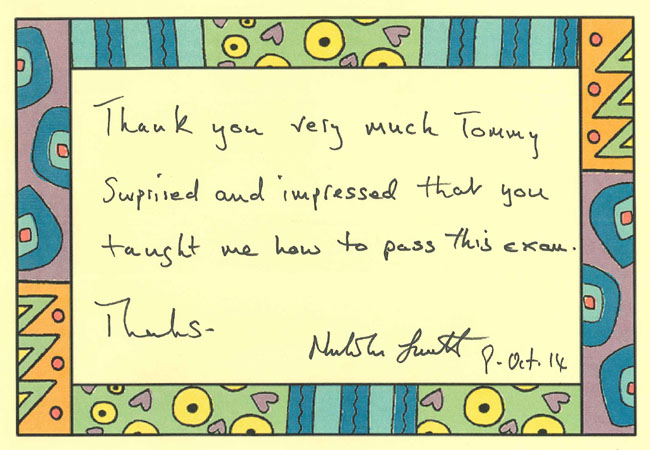 Thank you very much Tommy
Surprised and impressed that you
taught me how to pass this exam.
Thanks-
Oct. 14